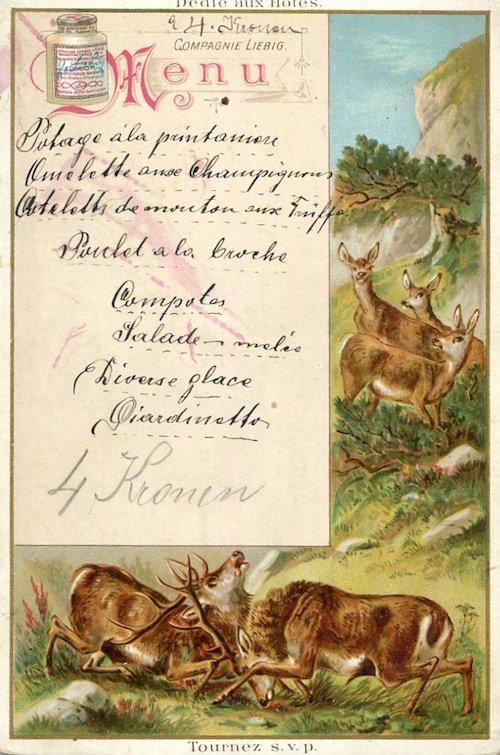 Dédié aux Hôtes.
a 4. Kronen
COMPAGNIE LIEBIG.
Menu
LONDON
Potage à la printaniere
Omelette aux Champignons
Coteletts de mouton aux Trüffe
Poulet a la broche
Compotes
Salade-melée
Diverse glace
Giardinetto
4 Kronen
Tournez s.v.p.